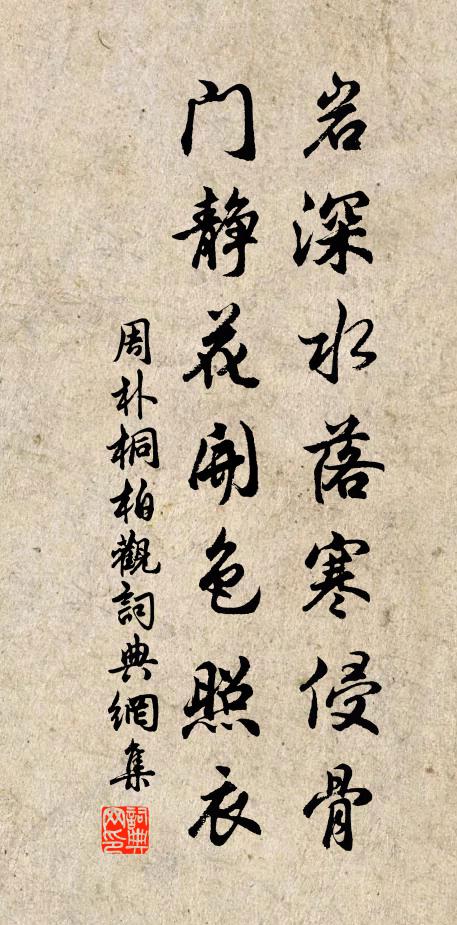 岩深水落寒侵骨
门静花開色照衣
周朴桐柏觀詞典網集
詞典
网印